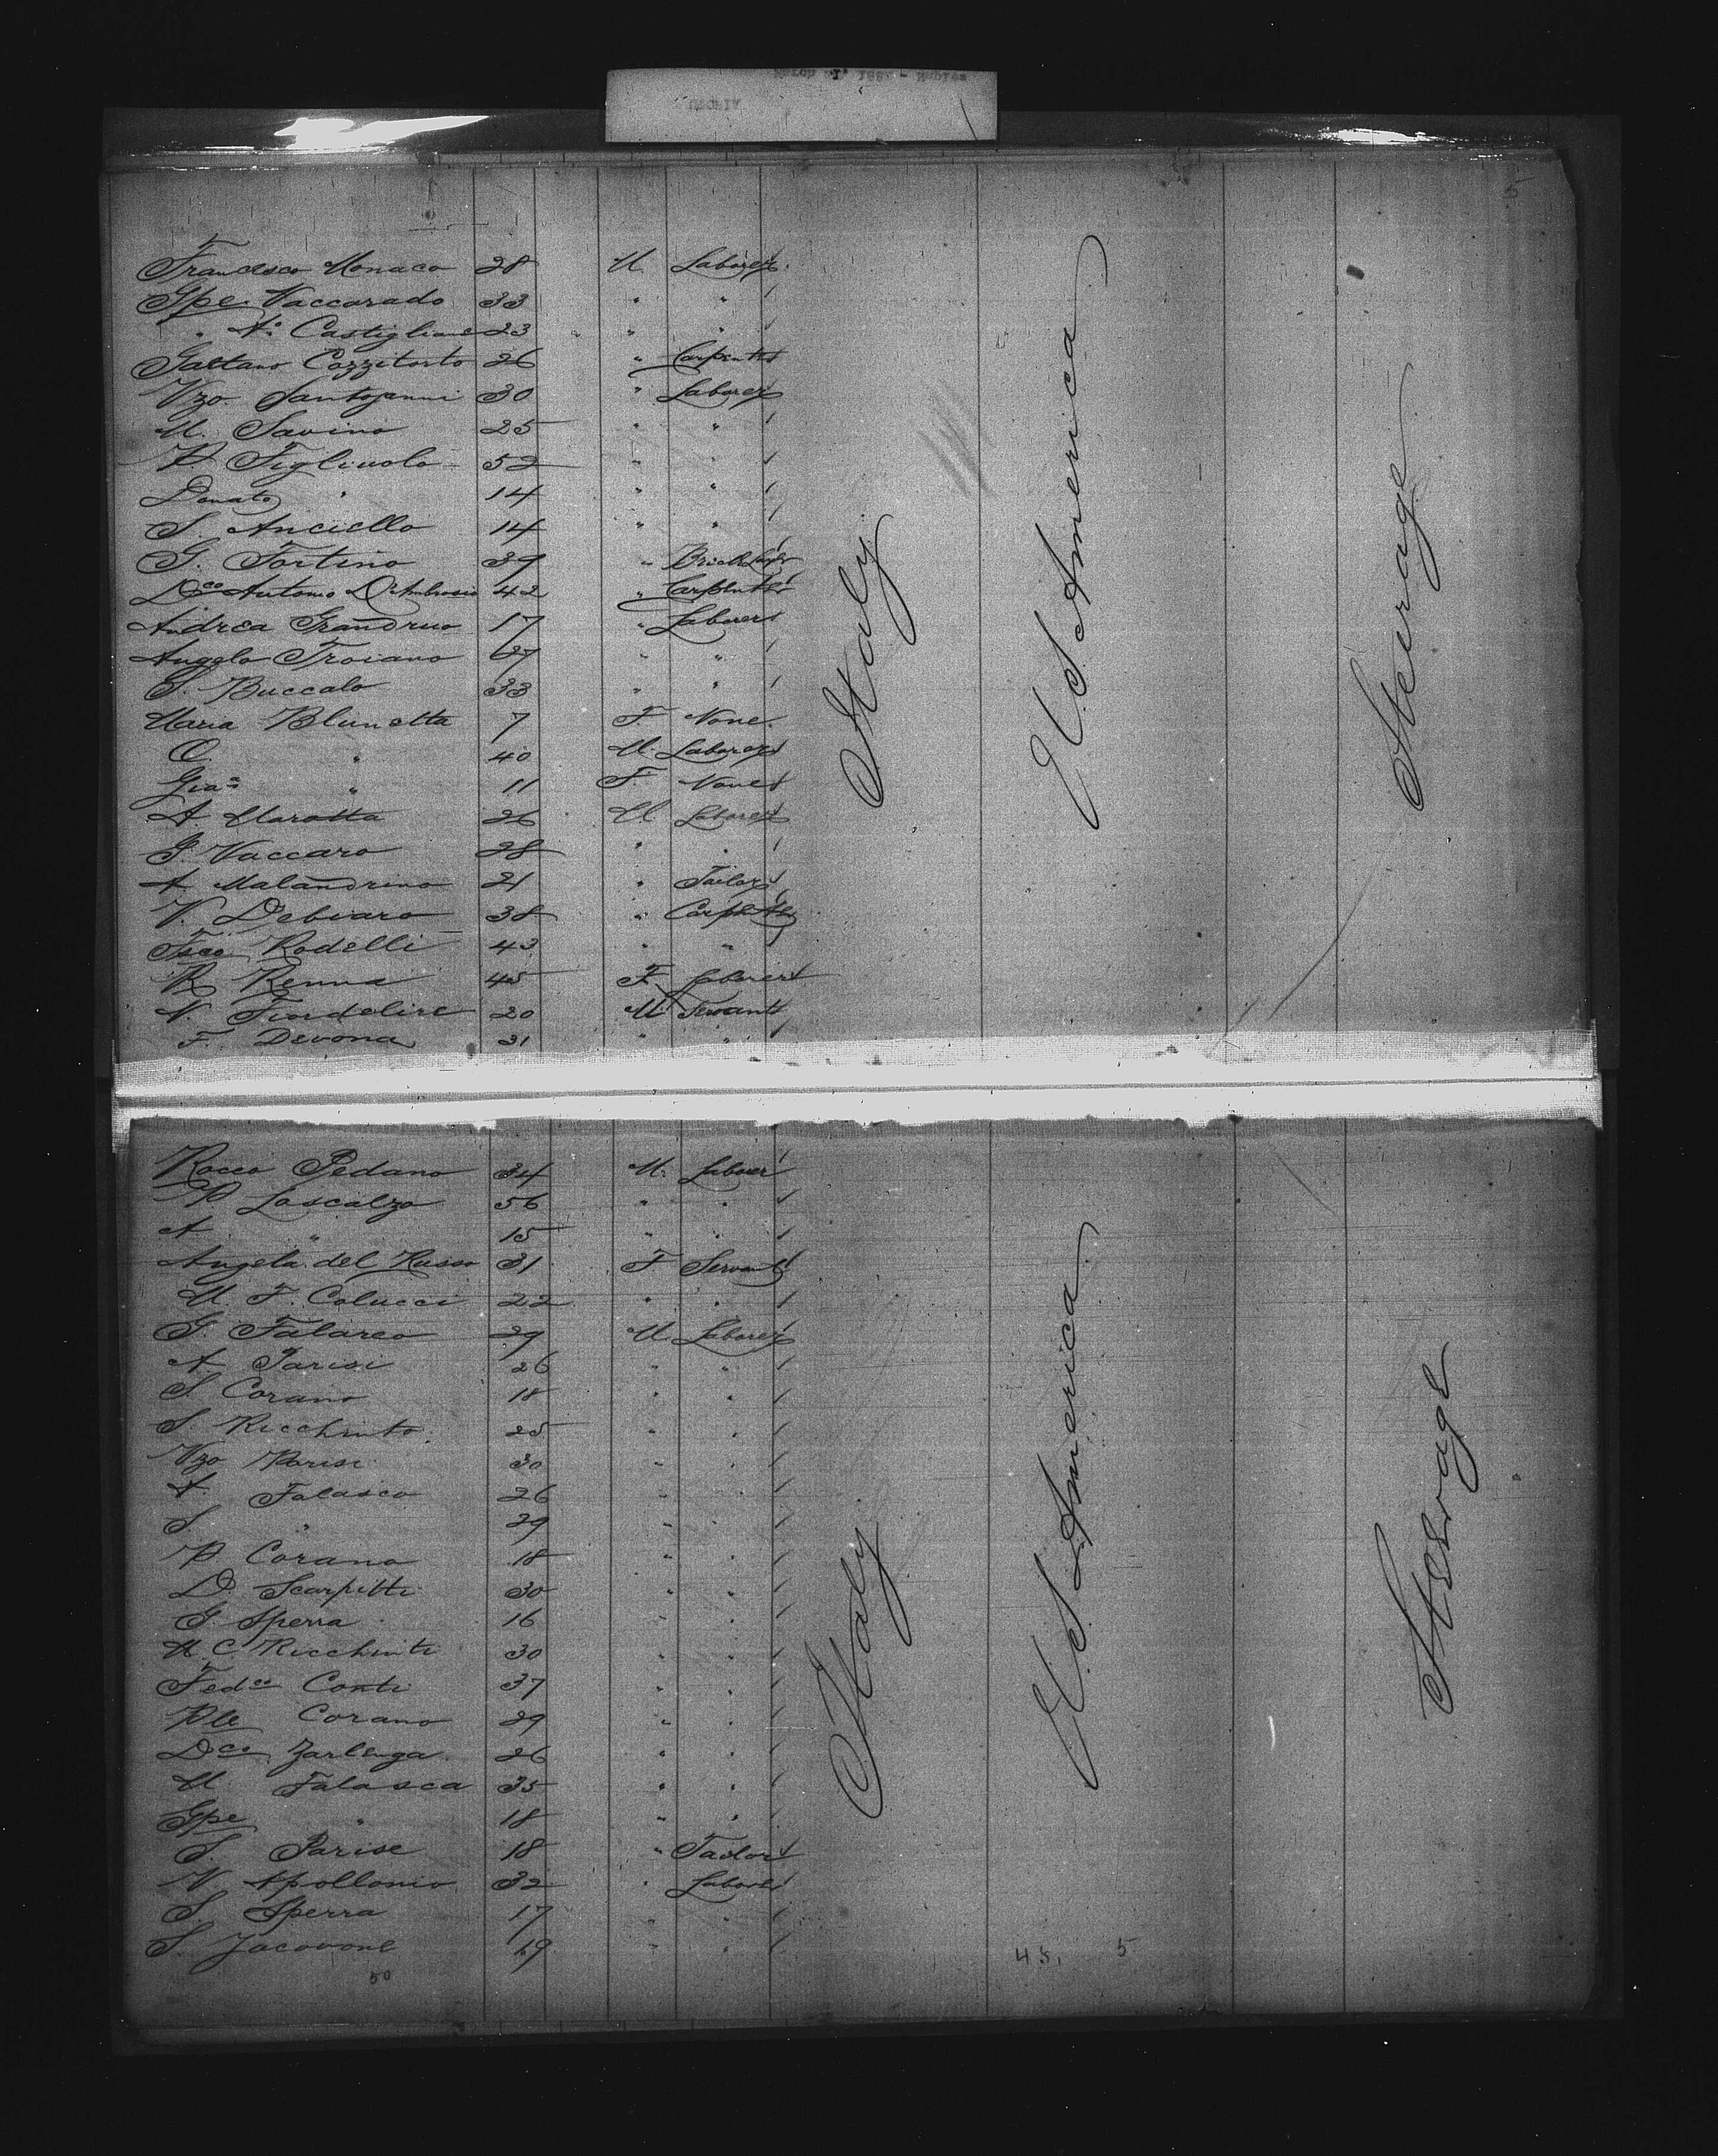 5
Francesco Monaco 28 M Laborer
Gpe Vaccarado 33 " "
" No Castiglione 23 " "
Gaetano Cozzitorto 26 " Carpenter
Vzo. Santojanni 30 " Laborer
M. Savino 25 " "
V. Figliuolo 52 " "
Donato " 14 " "
S. Anciello 14 " "
G. Fortino 39 " Brick Layer
Dco Antonio D'Ambrosio 42 " Carpenter
Andrea Grandruo 17 " Laborer
Angelo Troiano 67 " "
S. Buccalo 33 " "
Maria Blunetta 7 F. None
C. " 40 M. Laborer
Gia= " 11 F. None
A. Marotta 26 M Laborer
G. Vaccaro 28 " "
A. Malandrino 21 " Tailor
V. Debiaro 38 " Carpenter
Fsco Rodelli 43 " "
R Renna 45 F Laborer
N. Fiordelire 20 M Servant
F. Devona 21 " "
Italy
U.S. America
Steerage
Rocco Pedano 34 M. Laborer
P Loscalzo 56 " "
A " 15 " "
Angela del Russo 31 F Servant
M. F. Colucci 22 " "
G. Falarco 29 M Laborer
A. Parisi 26 " "
S. Corano 18 " "
S. Ricchinto 25 " "
Vzo Parisi 30 " "
A. Falasca 26 " "
S " 29 " "
P. Corano 18 " "
D. Scarpitti 30 " "
G. Sperra 16 " "
M. C. Ricchiuti 30 " "
Fedco Conti 37 " "
Ple Corano 29 " "
Dco Zarlenga 26 " "
M. Falasca 35 " "
Gpe " 18 " "
S. Parise 18 " Tailor
N. Apollonio 32 " Laborer
S. Sperra 17 " "
S. Jacovone 19 " "
50
Italy
U.S. America
Steerage
45. 5